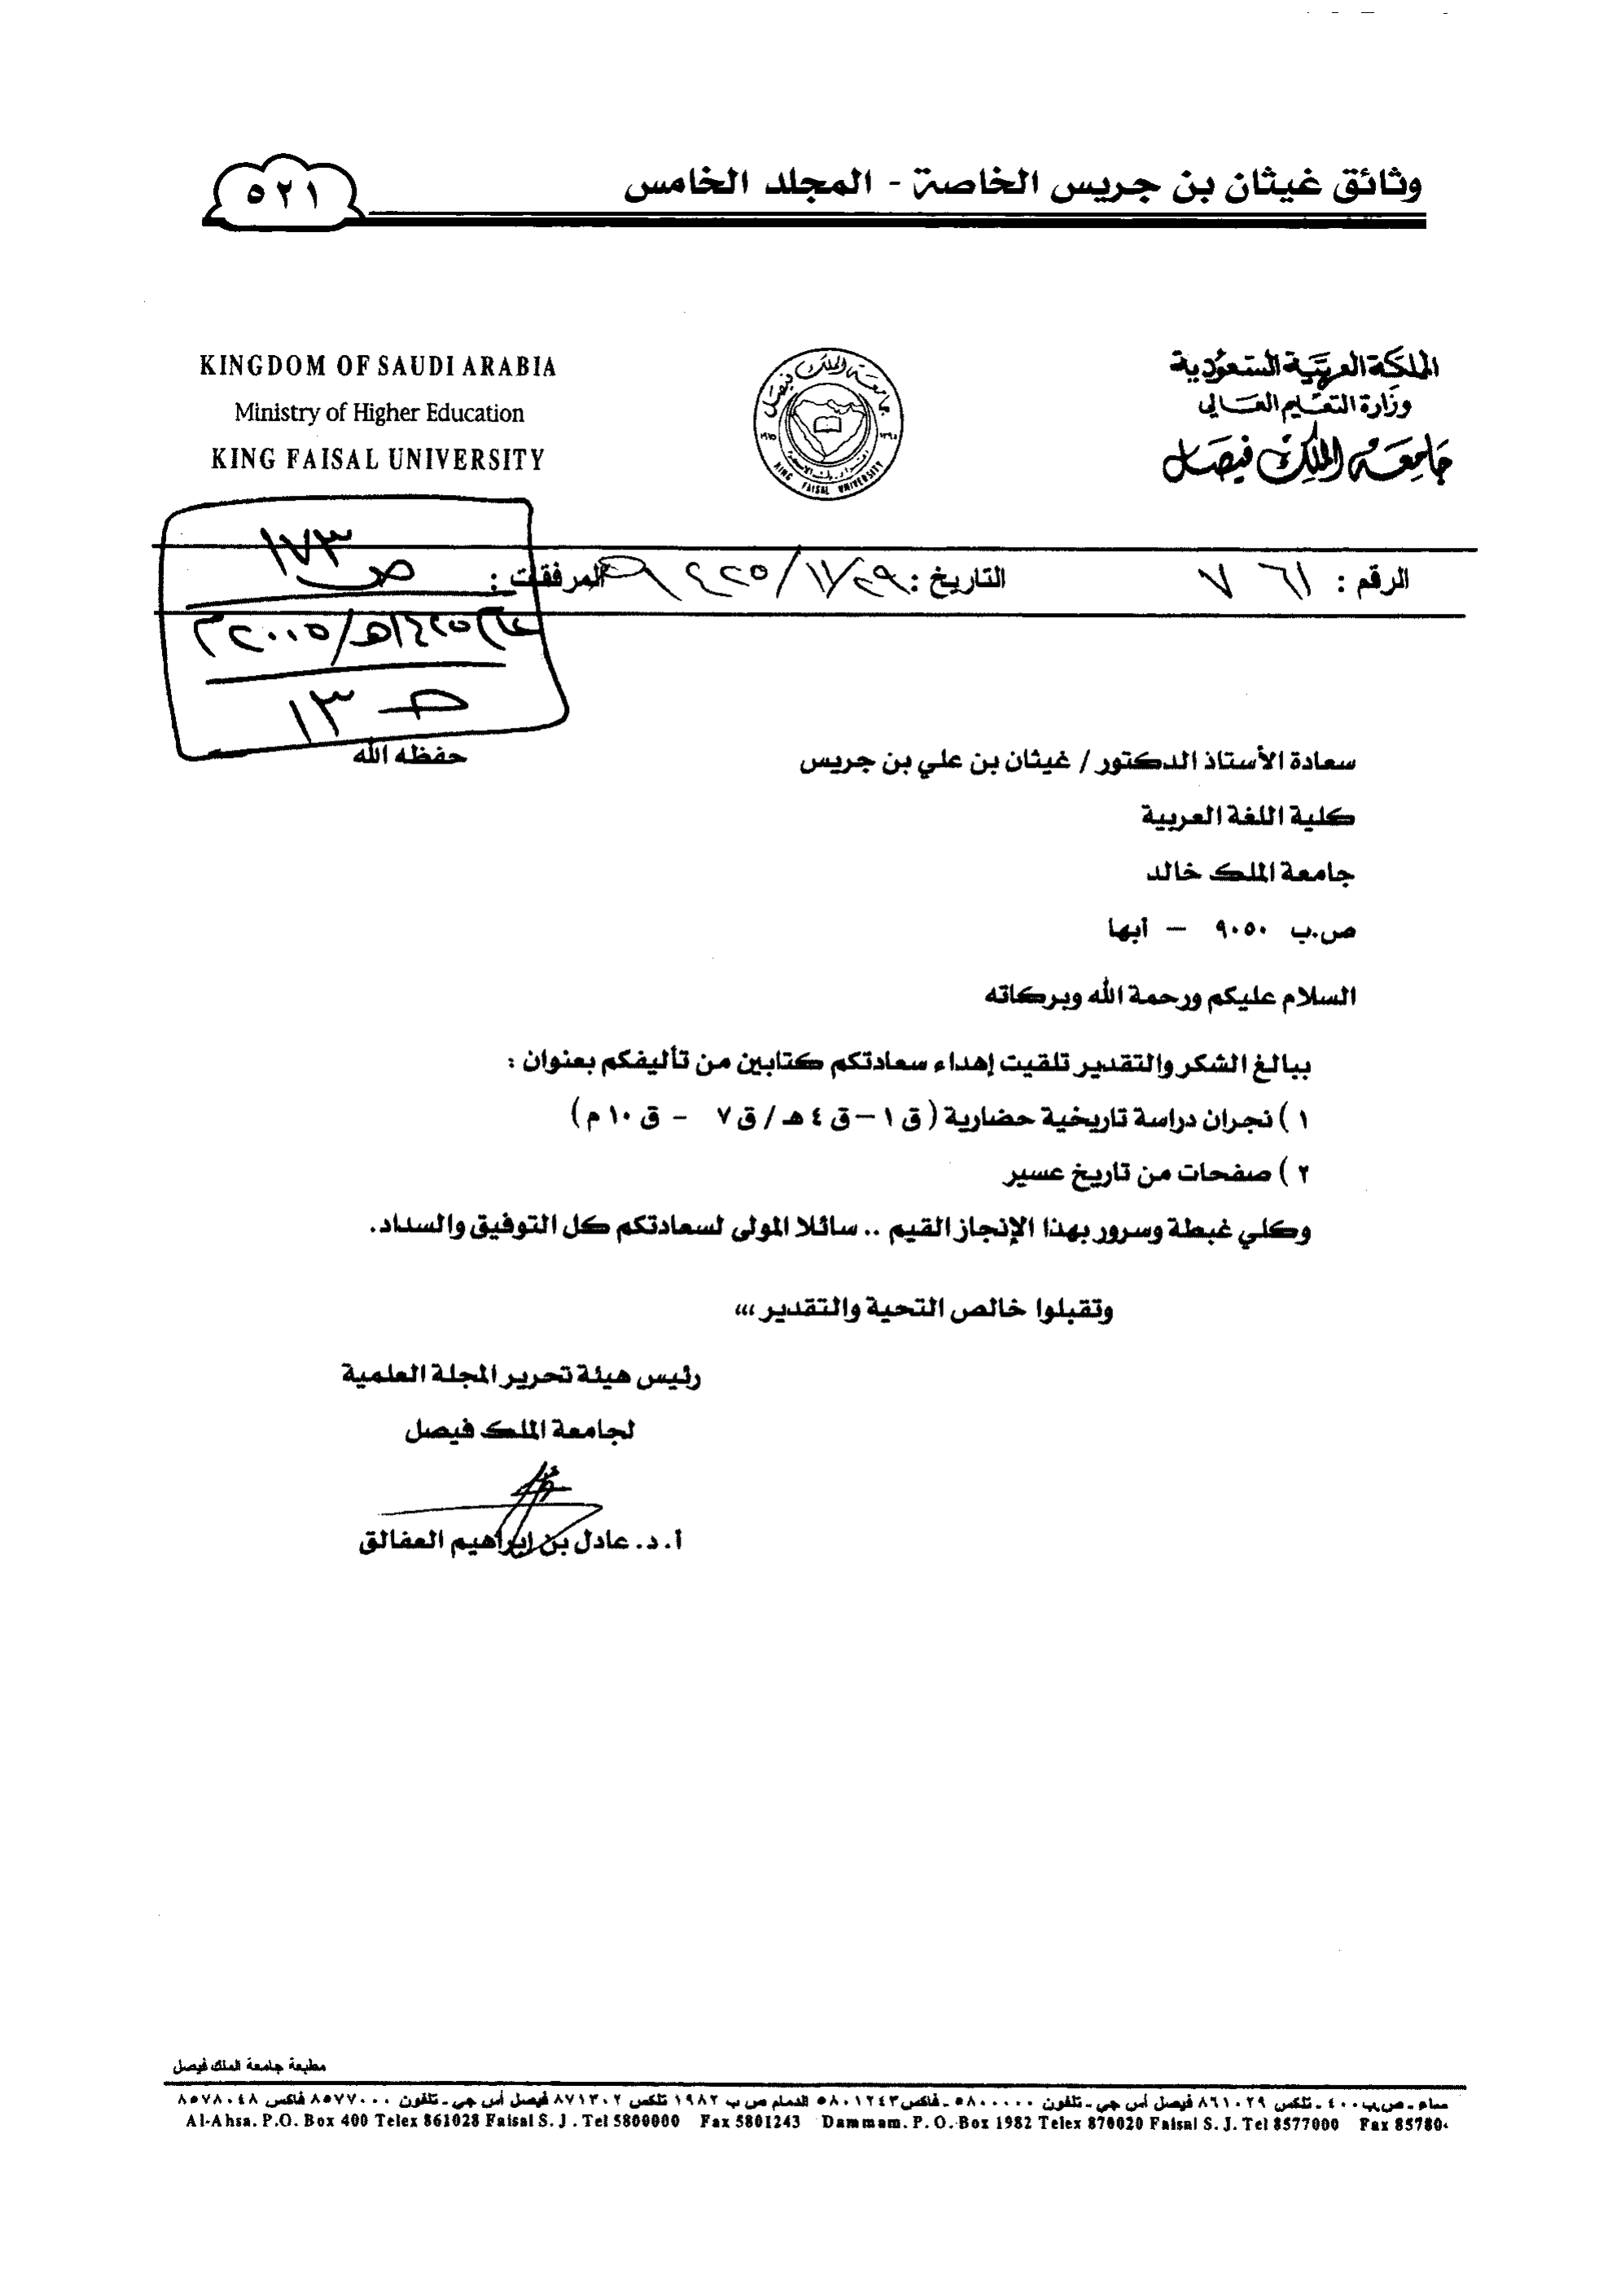 وثائق غيثان بن جريس الخاصة - المجلد الخامس
٥٢١
KINGDOM OF SAUDI ARABIA
Ministry of Higher Education
KING FAISAL UNIVERSITY
جامعة الملك فيصل
KING FAISAL UNIVERSITY
المملكة العربية السعودية
وزارة التعليم العالي
جامعة الملك فيصل
الرقم : ٧٦١
التاريخ : ٢٩/١١/١٤٢٥هـ
المرفقات :
١٧٣
ص
عام ١٤٢٥هـ/٢٠٠٥م
١٣
سعادة الأستاذ الدكتور / غيثان بن علي بن جريس حفظه الله
كلية اللغة العربية
جامعة الملك خالد
ص.ب ٩٠٥٠ – أبها
السلام عليكم ورحمة الله وبركاته
ببالغ الشكر والتقدير تلقيت إهداء سعادتكم كتابين من تأليفكم بعنوان :
١ ) نجران دراسة تاريخية حضارية ( ق ١ – ق ٤ هـ / ق ٧ - ق ١٠ م )
٢ ) صفحات من تاريخ عسير
وكلي غبطة وسرور بهذا الإنجاز القيم .. سائلا المولى لسعادتكم كل التوفيق والسداد.
وتقبلوا خالص التحية والتقدير ،،،
رئيس هيئة تحرير المجلة العلمية
لجامعة الملك فيصل
أ. د. عادل بن إبراهيم العفالق
مطبعة جامعة الملك فيصل
ص.ب ٤٠٠ - تلكس ٨٦١٠٢٩ فيصل أس جي - تلفون ٥٨٠٠٠٠٠ - فاكس ٥٨٠١٢٤٣ الدمام ص ب ١٩٨٢ تلكس ٨٧١٣٠٢ فيصل أس جي - تلفون ٨٥٧٧٠٠٠ فاكس ٨٥٧٨٠٤٨
Al-Ahsa. P.O. Box 400 Telex 861028 Faisal S. J . Tel 5800000 Fax 5801243 Dammam. P. O. Box 1982 Telex 870020 Faisal S. J. Tel 8577000 Fax 85780